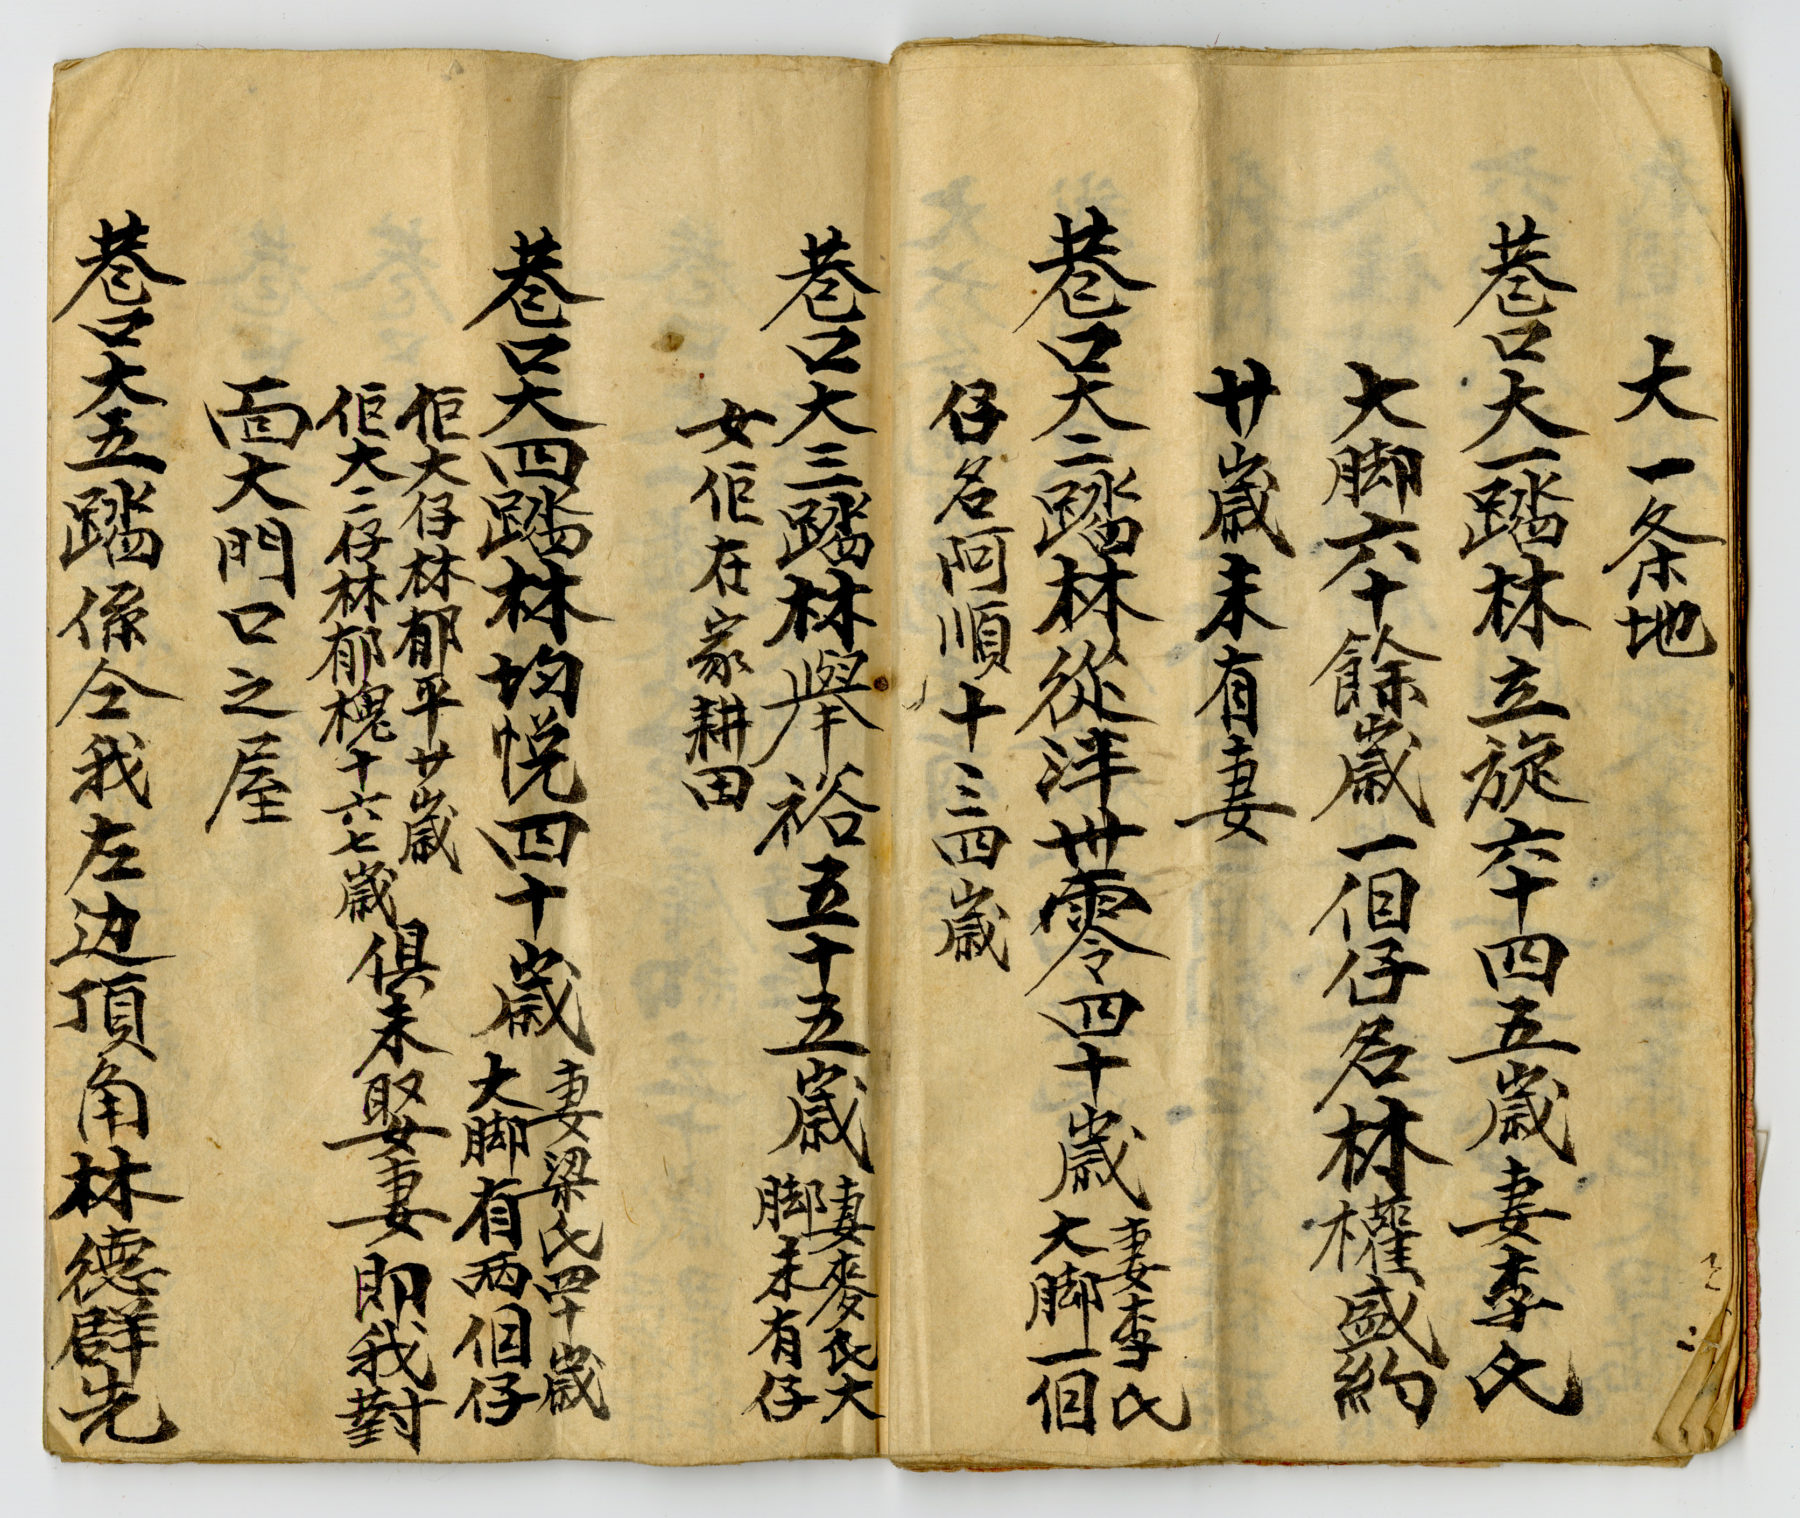 大一条地
巷口大一踏林立旋六十四五歲妻李氏
大脚六十餘歲一個仔名林權盛約
廿歲未有妻
巷口大二踏林從洋卅零四十歲妻李氏
大脚一個
仔名阿順十三四歲
巷口大三踏林舉裕五十五歲妻麥氏大
脚未有仔
女佢在家耕田
巷口大四踏林均悅四十歲妻梁氏四十歲
大脚有兩個仔
佢大仔林郁平廿歲
佢大二仔林郁槐十六七歲
俱未娶妻即我對
面大門口之屋
巷口大五踏係仝我左边頂角林德群先